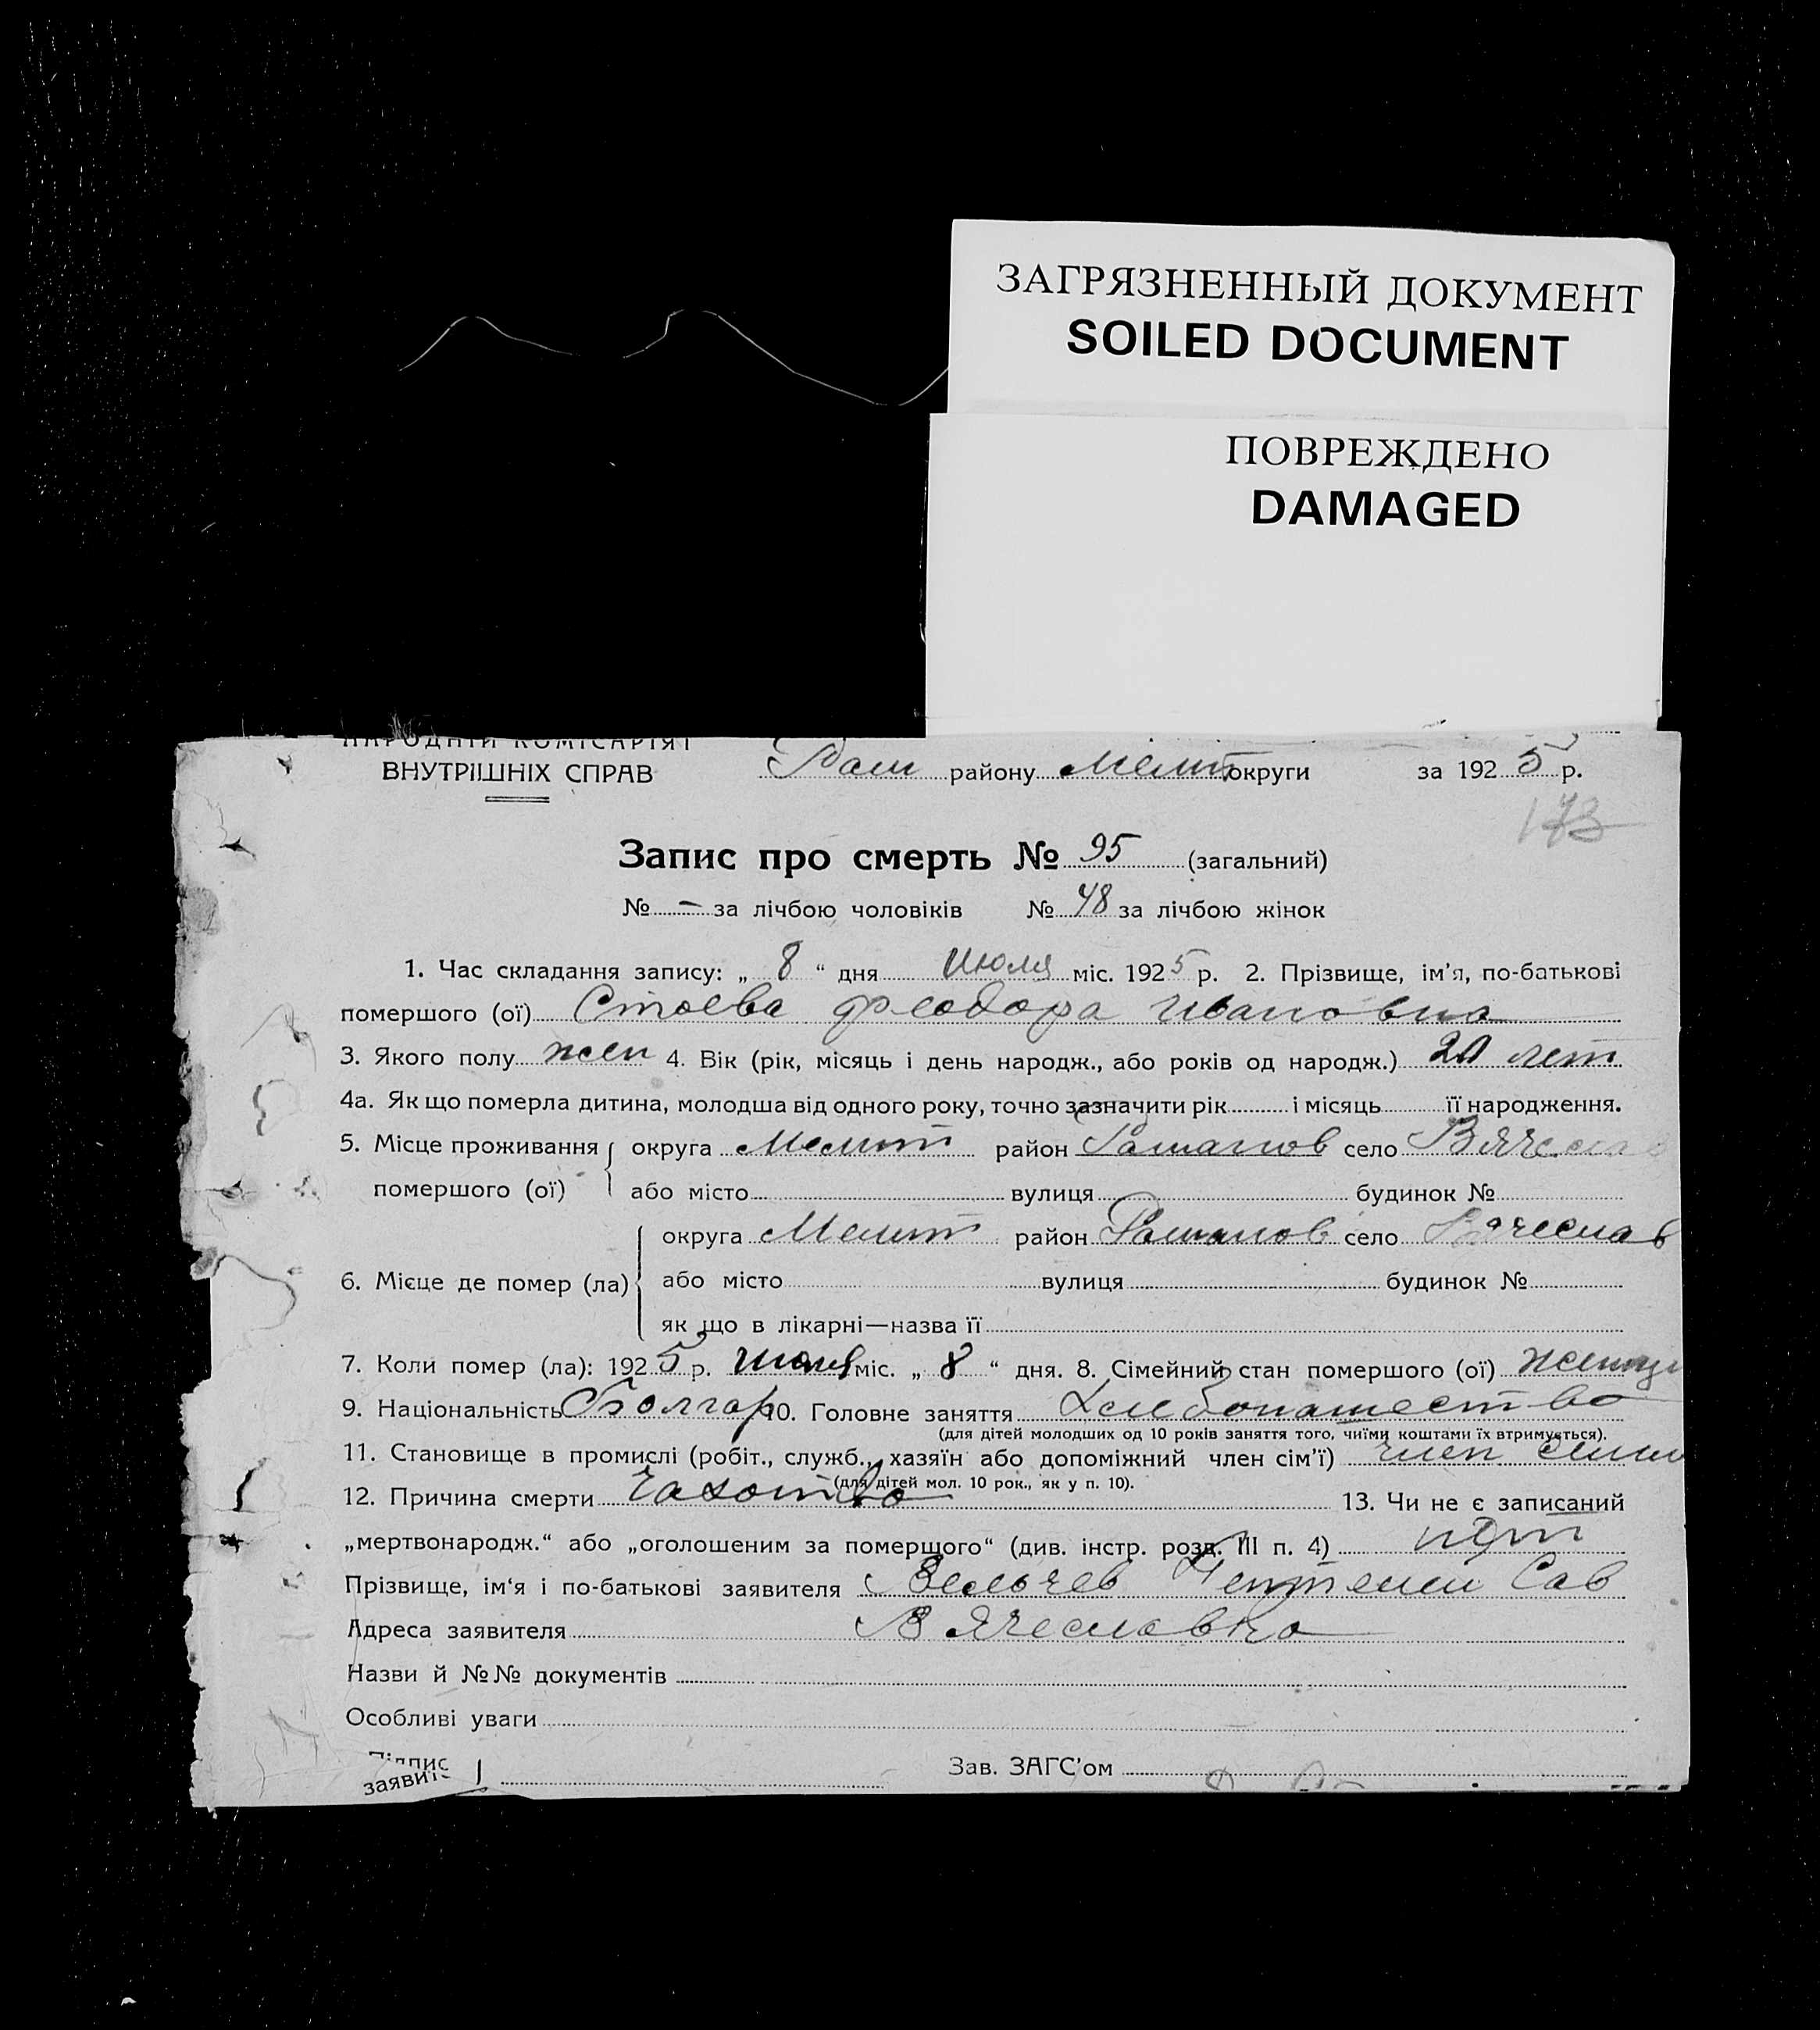 ЗАГРЯЗНЕННЫЙ ДОКУМЕНТ
SOILED DOCUMENT
ПОВРЕЖДЕНО
DAMAGED
НАРОДНІЙ КОМІСАРІЯТ
ВНУТРІШНІХ СПРАВ
району Мелит округи за 1925 р.
173
Запис про смерть № 95 (загальний)
№ - за лічбою чоловіків № 48 за лічбою жінок
1. Час складання запису: „ 8 “ дня Июля міс. 1925 р. 2. Прізвище, ім’я, по-батькові
помершого (ої) Стоева Феодора Ивановна
3. Якого полу жен 4. Вік (рік, місяць і день народж., або років од народж.) 20 лет
4а. Як що померла дитина, молодша від одного року, точно зазначити рік і місяць її народження.
5. Місце проживання округа Мелит район Романов село Вячеслав
помершого (ої) або місто вулиця будинок №
округа Мелит район Романов село Вячеслав
6. Місце де помер (ла) або місто вулиця будинок №
як що в лікарні—назва її
7. Коли помер (ла): 1925 р. июля міс. „ 8 “ дня. 8. Сімейний стан помершого (ої)
9. Національність Болгар 10. Головне заняття Хлебопашество
(для дітей молодших од 10 років заняття того, чиїми коштами їх втримується).
11. Становище в промислі (робіт., служб., хазяїн або допоміжний член сім’ї) член семи
(для дітей мол. 10 рок., як у п. 10).
12. Причина смерти Чахотка 13. Чи не є записаний
„мертвонародж.“ або „оголошеним за помершого“ (див. інстр. розд. III п. 4) нет
Прізвище, ім‘я і по-батькові заявителя Вельчев Сав
Адреса заявителя Вячеславка
Назви й №№ документів
Особливі уваги
Підпис
заявит Зав. ЗАГС’ом